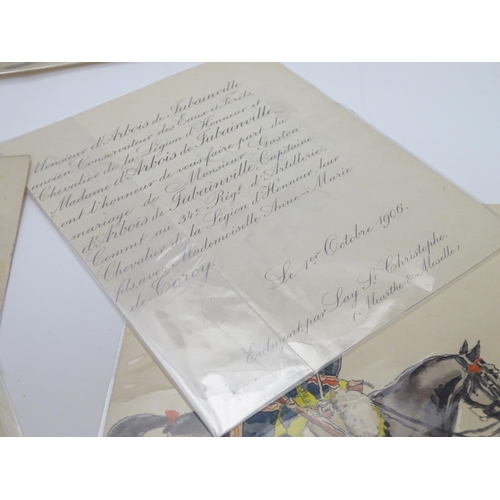 Monsieur d'Arbois de Jubainville
ancien Conservateur des Eaux et Forêts,
Chevalier de la Légion d'Honneur et
Madame d'Arbois de Jubainville
ont l'honneur de vous faire part du
mariage de Monsieur Gaston
d'Arbois de Jubainville, Capitaine
Commt au 34e Régt d'Artillerie,
Chevalier de la Légion d'Honneur, leur
fils, avec Mademoiselle Anne-Marie
de Torcy.
Le 1er Octobre 1906.
Eulmont par Lay St Christophe
(Meurthe & Moselle)